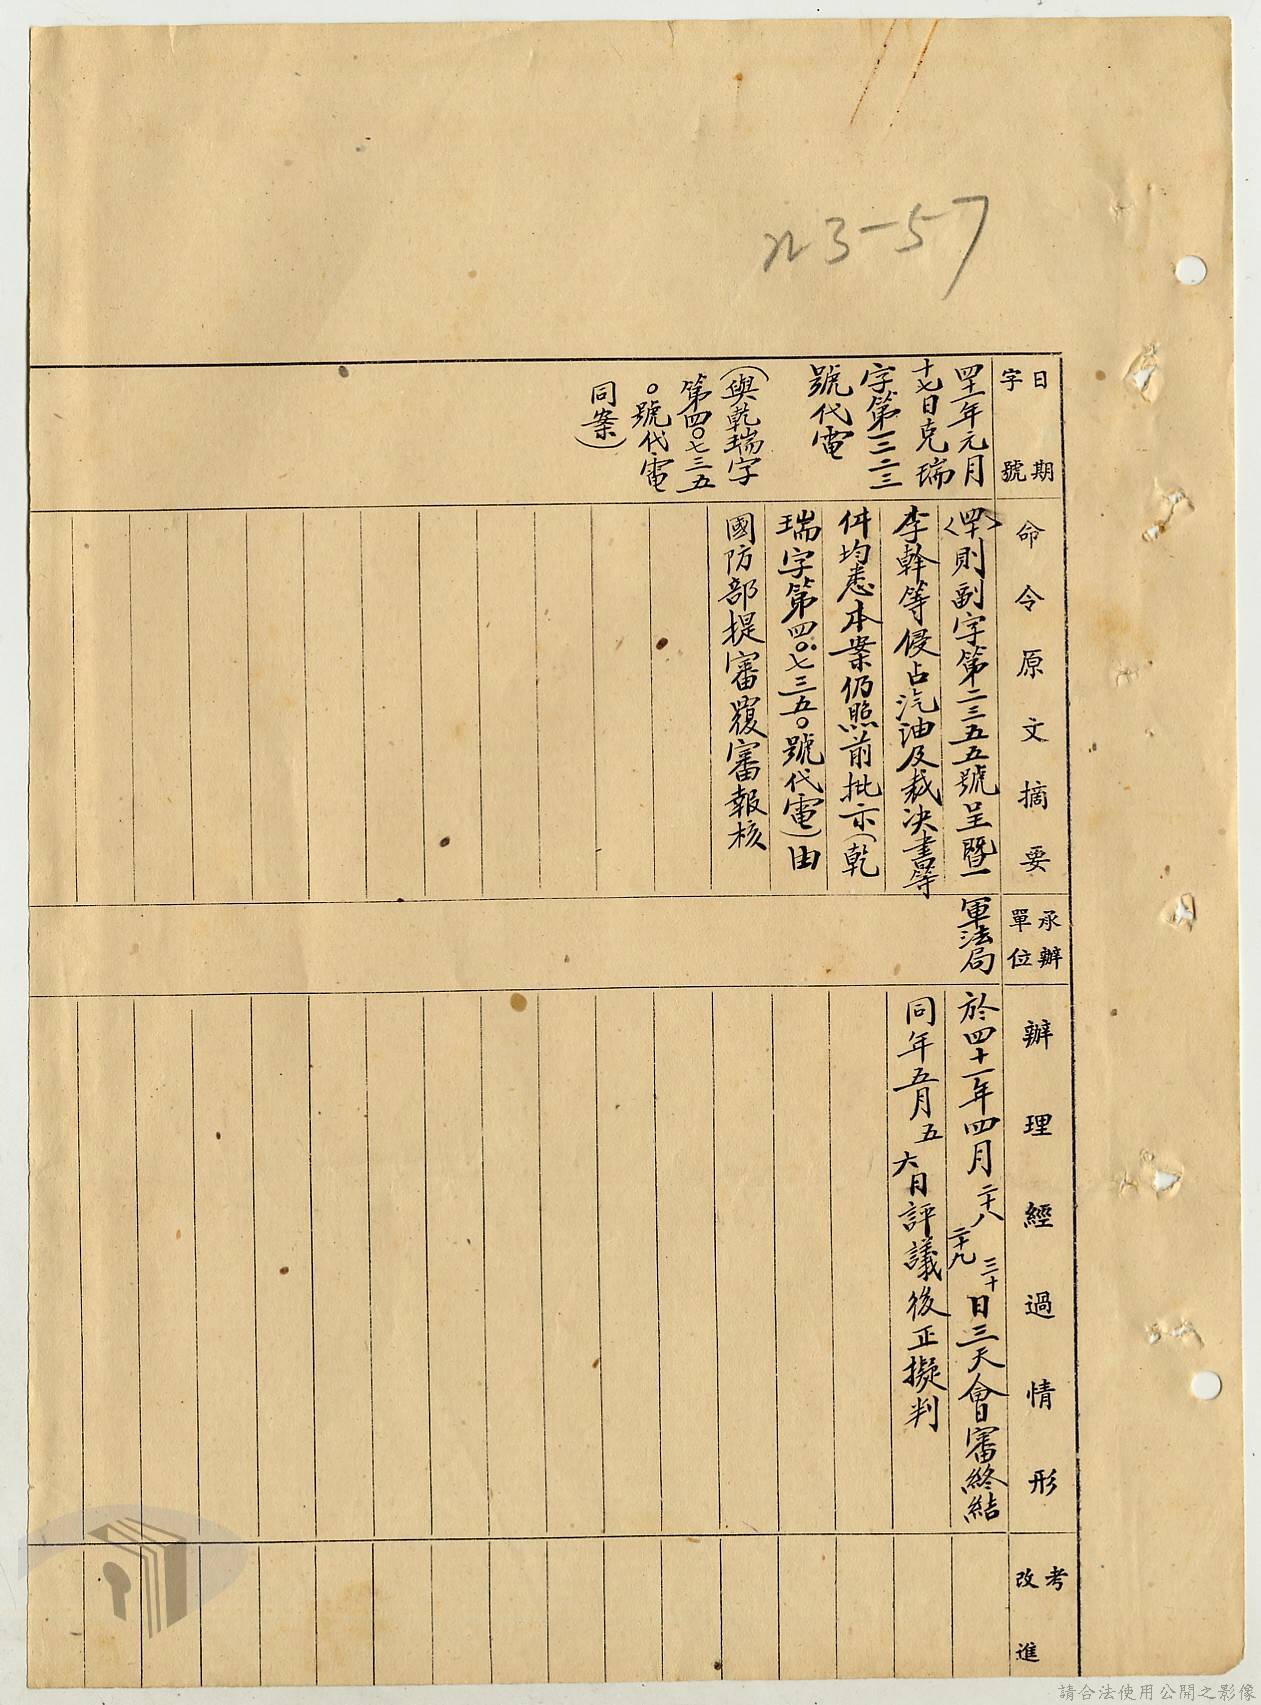 n3-57
日期
字號
命令原文摘要
承辦
單位
辦理經過情形
考
改進
四十一年元月
十七日克瑞
字第一三二三
號代電
(與乾瑞字
第四〇七三五
〇號代電
同案)
<四十>則副字第二三五五號呈暨
李幹等侵占汽油及裁決書等
件均悉本案仍照前批示(乾
瑞字第四〇七三五〇號代電)由
國防部提審覆審報核
軍法局
於四十一年四月二十八 二十九 三十日三天會審終結
同年五月五 六日評議後正擬判
請合法使用公開之影像